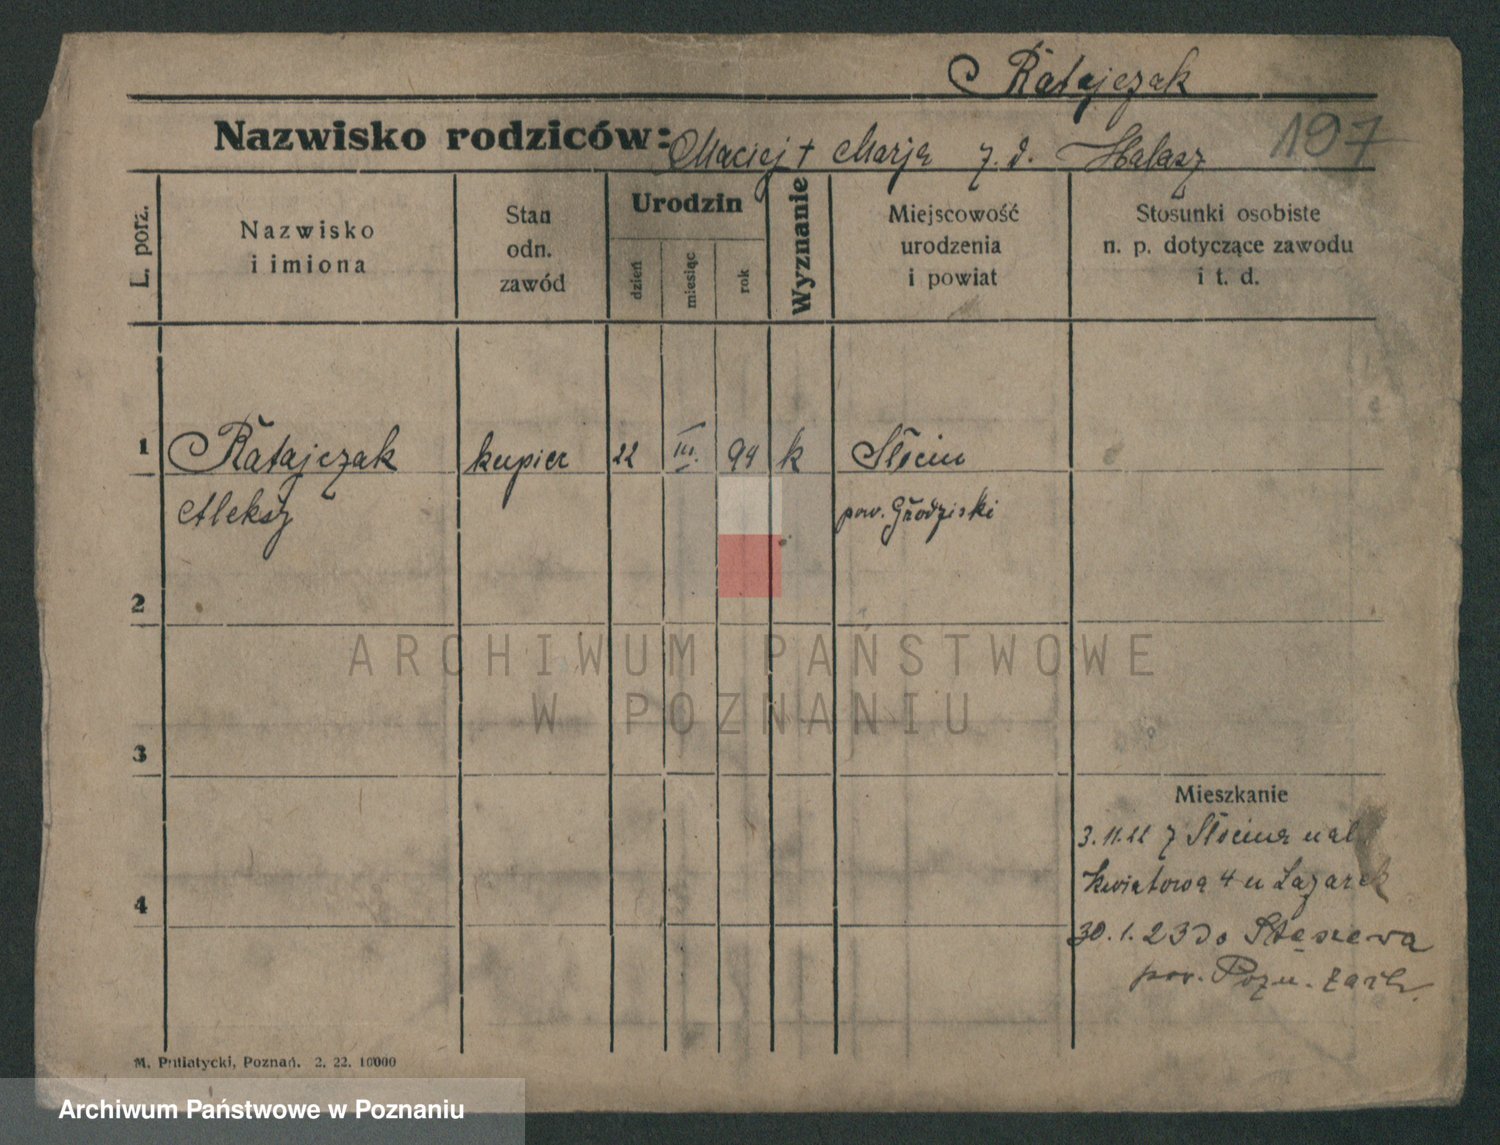 Ratajczak
Nazwisko rodziców: Maciej + Marja z. d. Halasz
197
L. porz.
Nazwisko
i imiona
Stan
odn.
zawód
Urodzin
dzień
miesiąc
rok
Wyznanie
Miejscowość
urodzenia
i powiat
Stosunki osobiste
n. p. dotyczące zawodu
i t. d.
1 Ratajczak kupiec 22 III. 94 k Słocin
Aleksy pow. Grodziski
2
ARCHIWUM PAŃSTWOWE
W POZNANIU
3
Mieszkanie
3. 11. 22 z Słocina
Kwiatowa 4 u Lazarek
4
30. 1. 23 do Stęszewa
pow. Pozn. Zach.
M. Putiatycki, Poznań. 2. 22. 10000
Archiwum Państwowe w Poznaniu